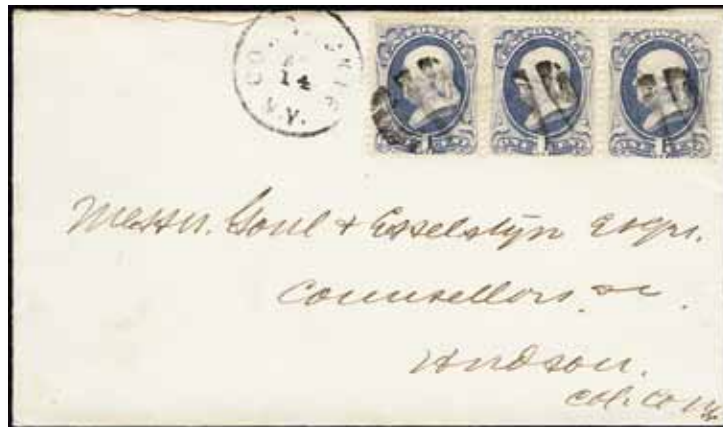 14
N.Y.
Messrs. Goul & Esselstyn Esqrs.
Counsellors. &c.
Hudson.
Col. Co NY